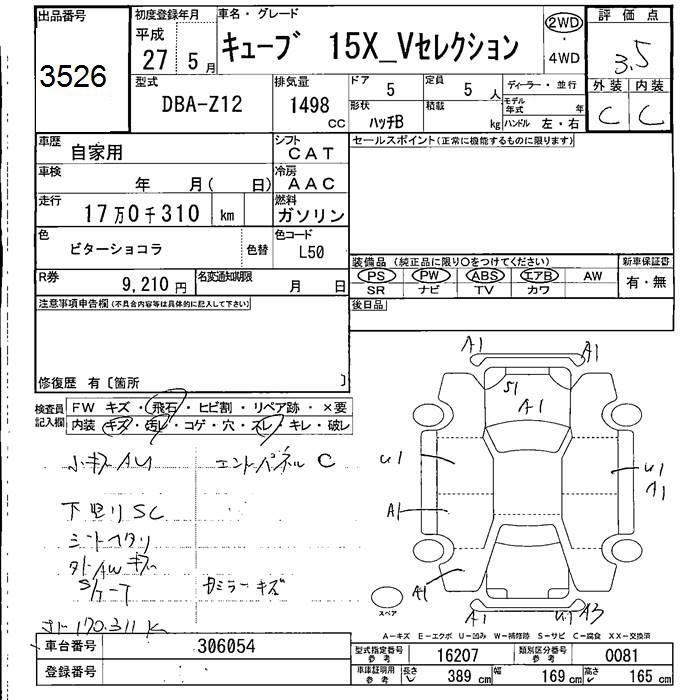 出品番号
3526
初度登録年月
平成
27 5 月
車名・グレード
キューブ 15X_Vセレクション
2WD
・
4WD
評価点
3.5
外装 内装
C C
型式
DBA-Z12
排気量
1498
CC
ドア
5
定員
5 人
ディーラー・並行
形状
ハッチB
積載
kg
モデル年式 年
ハンドル 左・右
車歴
自家用
シフト
CAT
車検
年 月( 日)
冷房
AAC
走行
17万0千310 km
燃料
ガソリン
色
ビターショコラ
色替
色コード
L50
R券
9,210 円
名変通知期限
月 日
セールスポイント(正常に機能するものに限ります)
装備品(純正品に限り○をつけてください)
PS PW ABS エアB AW
SR ナビ TV カワ
新車保証書
有・無
後日品
注意事項申告欄(不具合内容等は具体的に記入して下さい)
修復歴 有〔箇所 〕
検査員記入欄
FW キズ・飛石・ヒビ割・リペア跡・×要
内装 キズ・汚レ・コゲ・穴・スレ・キレ・破レ
小キズAU
エンドパネル C
下廻リSC
シートヘタリ
タイヤAWキズ
カミラーキズ
170.311K
A1 A1
S1
A1
U1
A1
U1
A1
A1
A1
U1 A3
スペア
A-キズ E-エクボ U-凹み W-補修跡 S-サビ C-腐食 XX-交換済
車台番号
306054
登録番号
型式指定番号 参考
16207
類別区分番号 参考
0081
車庫証明用 参考
長さ 389 cm 幅 169 cm 高さ 165 cm